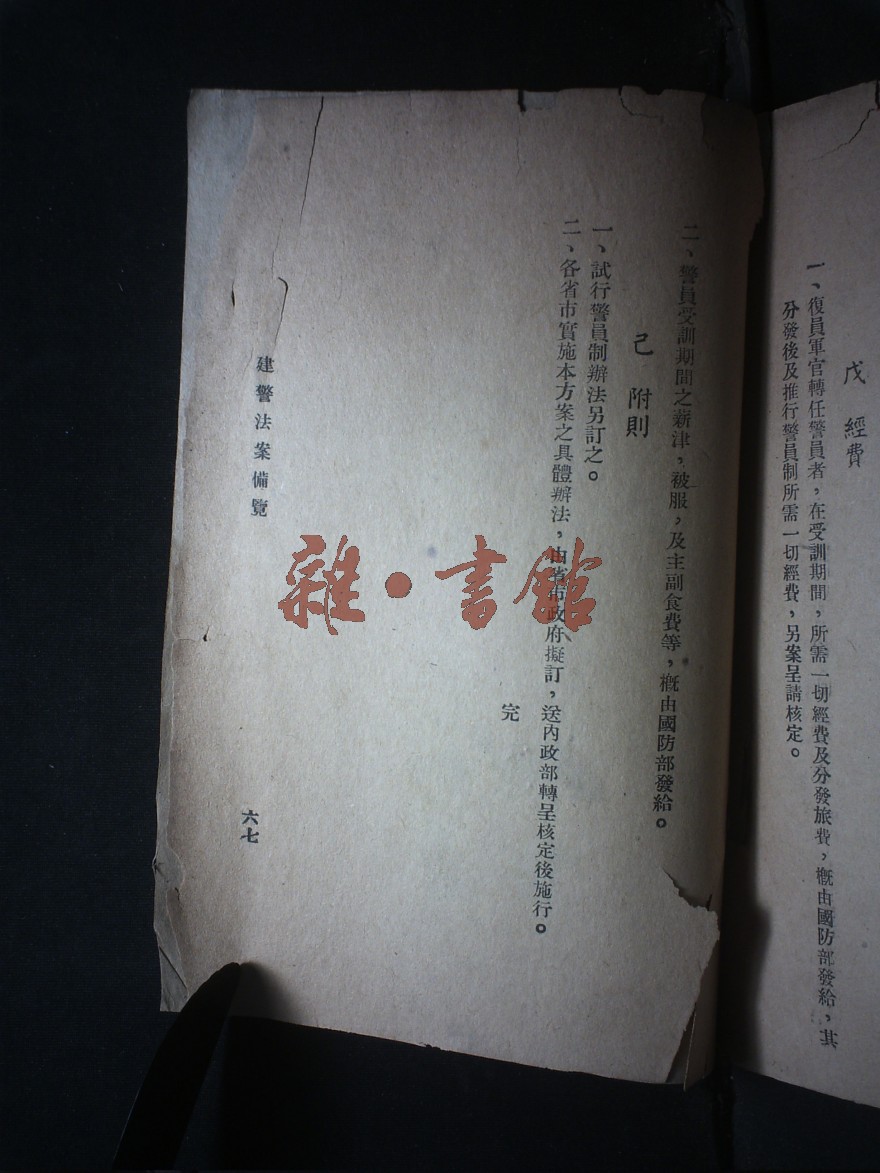 戊 經費
一、復員軍官轉任警員者，在受訓期間，所需一切經費及分發旅費，概由國防部發給，其
分發後及推行警員制所需一切經費，另案呈請核定。
二、警員受訓期間之薪津，被服，及主副食費等，概由國防部發給。
己 附則
一、試行警員制辦法另訂之。
二、各省市實施本方案之具體辦法，由省市政府擬訂，送內政部轉呈核定後施行。
完
建警法案備覽
六七
雜·書館